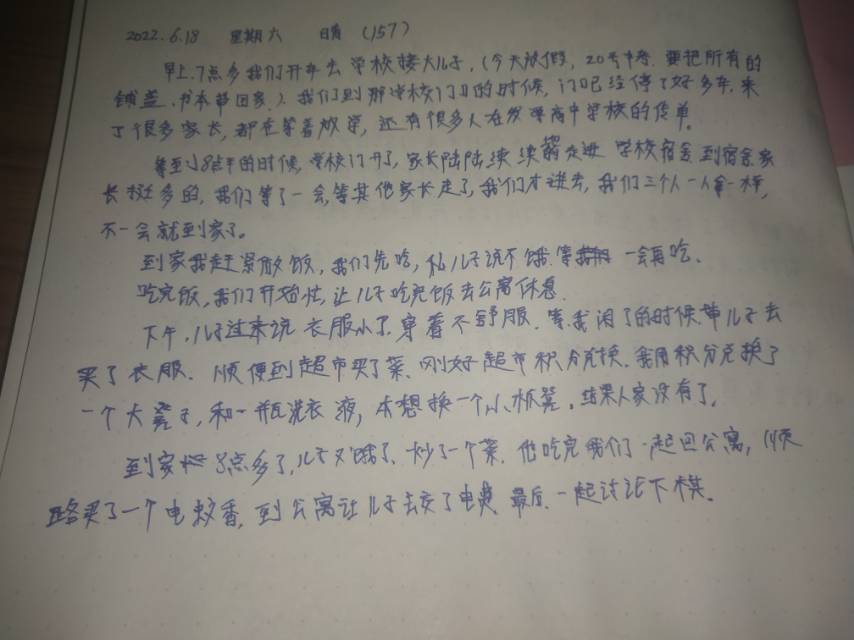 2022.6.18 星期六 晴 (157)
早上7点多我们开车去学校接大儿子,(今天放假,20号中考.要把所有的
铺盖.书本带回家.).我们到那学校门口的时候,门口已经停了好多车,来
了很多家长,都在等着放学,还有很多人在发高中学校的传单。
等到8点半的时候,学校门开了,家长陆陆续续走进学校宿舍,到宿舍家
长挺多的,我们等了一会,等其他家长走了,我们才进去,我们三个人一人拿一样,
不一会就到家了。
到家我赶紧做饭,我们先吃,儿子说不饿.等一会再吃.
吃完饭,我们开始忙,让儿子吃完饭去公寓休息.
下午,儿子过来说衣服小了,穿着不舒服.等我闲了的时候带儿子去
买了衣服.顺便到超市买了菜.刚好超市积分兑换.我用积分兑换了
一个大凳子,和一瓶洗衣液,本想换一个小板凳,结果人家没有了.
到家8点多了,儿子又饿了,炒了一个菜.他吃完我们一起回公寓,顺
路买了一个电蚊香,到公寓让儿子去交了电费.最后.一起下棋.